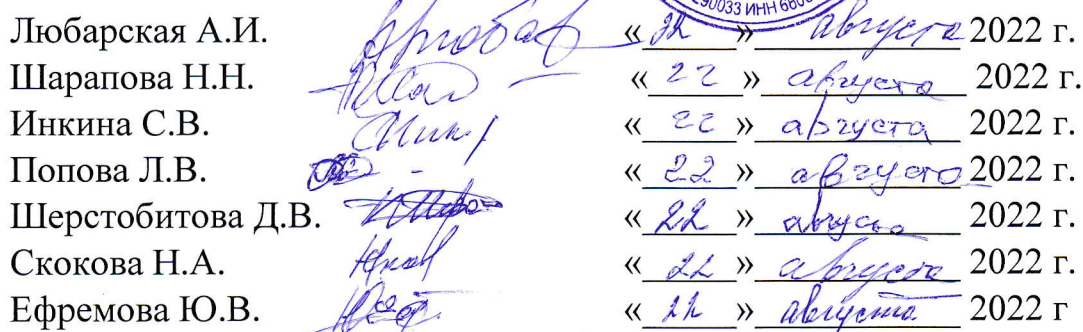 90033 ИНН 660
Любарская А.И. « 22 » августа 2022 г.
Шарапова Н.Н. « 22 » августа 2022 г.
Инкина С.В. « 22 » августа 2022 г.
Попова Л.В. « 22 » августа 2022 г.
Шерстобитова Д.В. « 22 » августа 2022 г.
Скокова Н.А. « 22 » августа 2022 г.
Ефремова Ю.В. « 22 » августа 2022 г